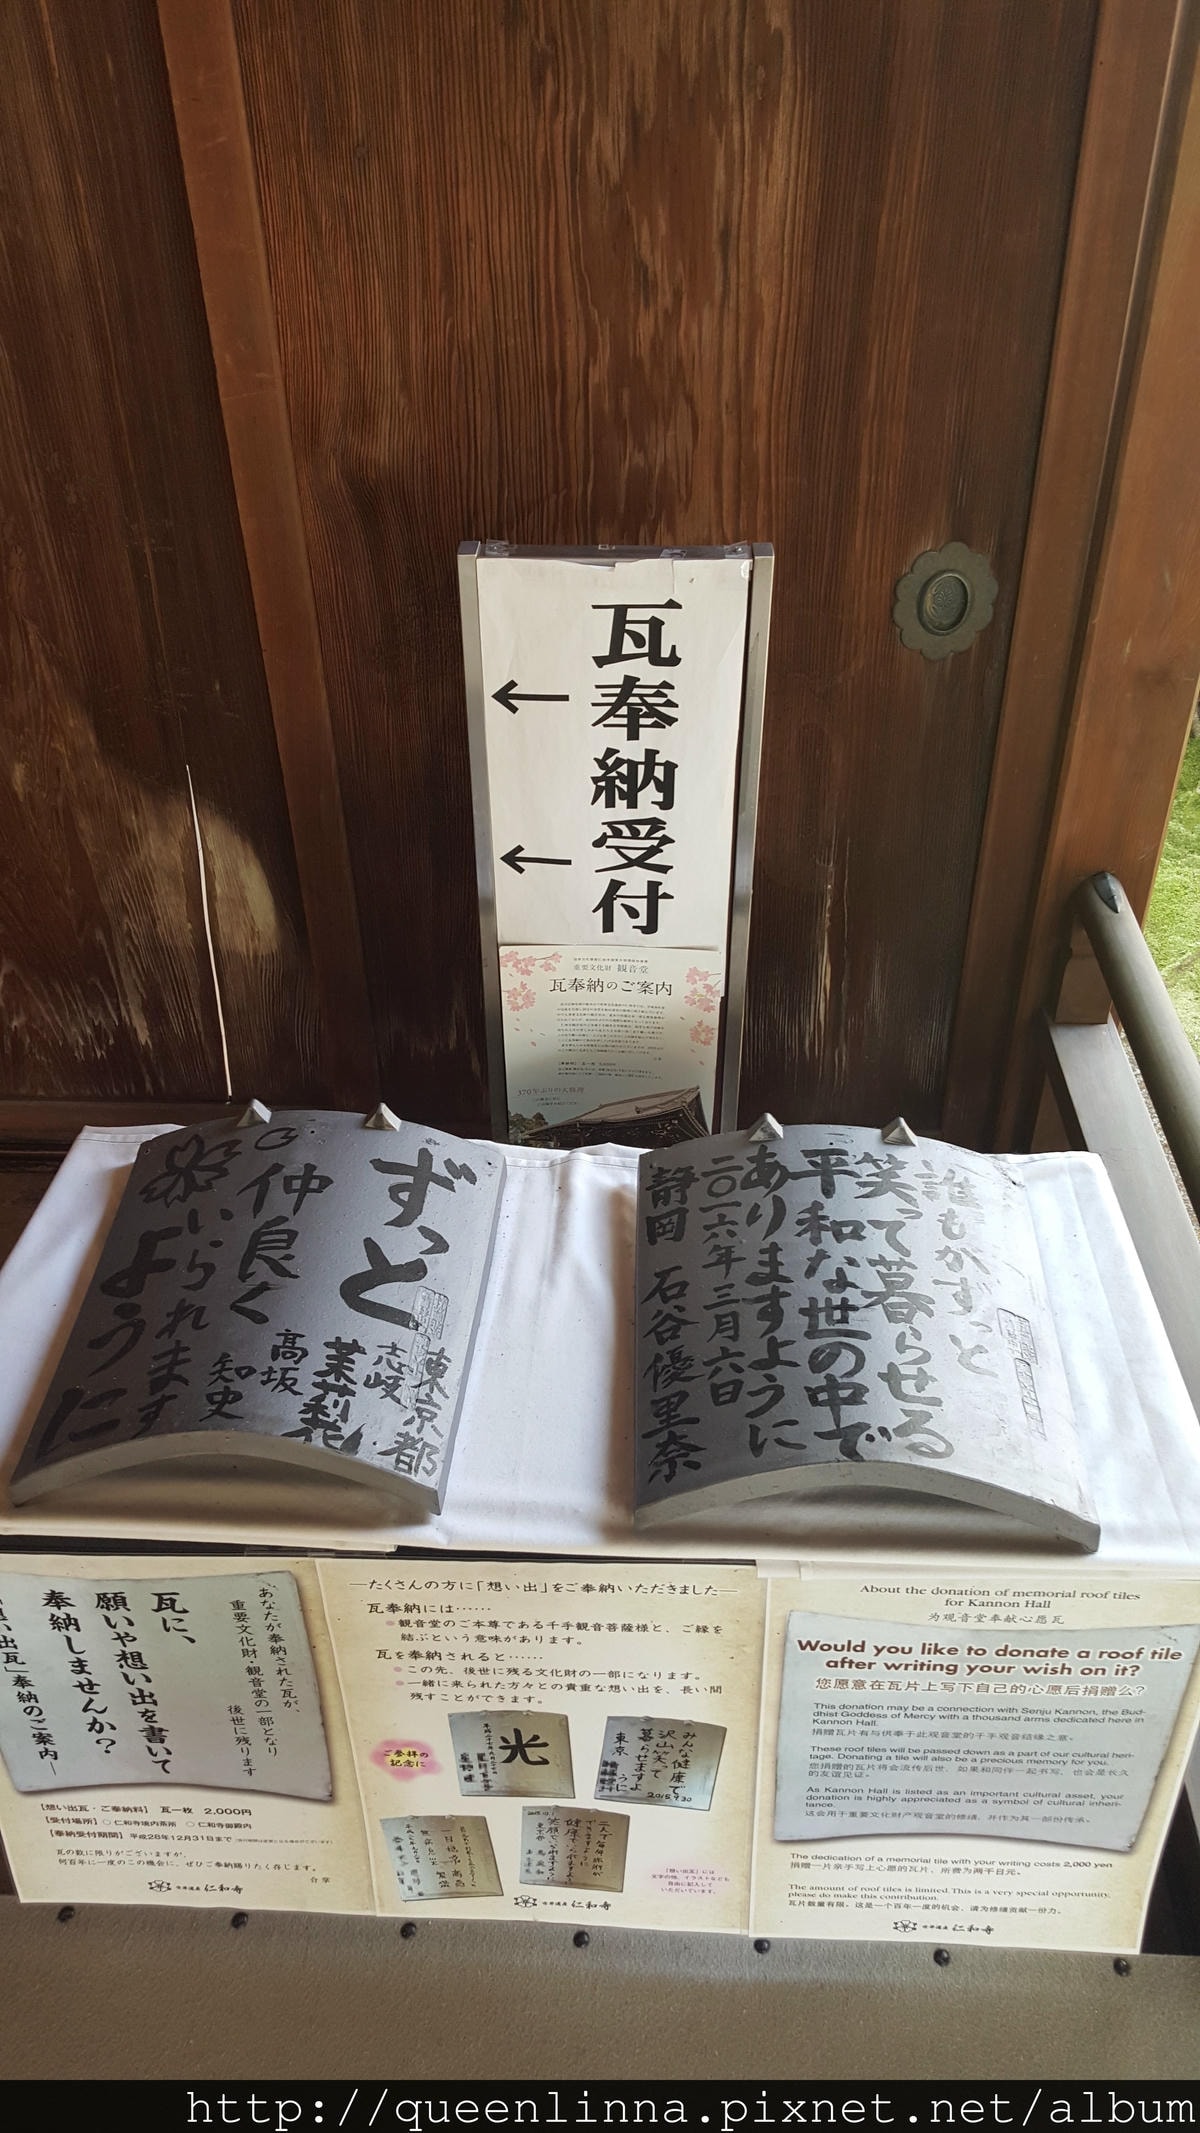 瓦奉納受付
重要文化財 観音堂
瓦奉納のご案内
370年ぶりの大修理
ずっと
仲良く
いられます
ように
東京都
志岐
茉莉花
高坂
知史
誰もがずっと
笑って暮らせる
平和な世の中で
ありますように
二〇一六年三月六日
静岡 石谷優里奈
あなたが奉納された瓦が、
重要文化財・観音堂の一部となり
後世に残ります
瓦に、
願いや想いを書いて
奉納しませんか？
い出瓦」奉納のご案内―
【想い出瓦・ご奉納料】 瓦一枚 2,000円
【受付場所】○仁和寺境内茶所 ○仁和寺御殿内
【奉納受付期間】平成28年12月31日まで
瓦の数に限りがございますが、
何百年に一度のこの機会に、ぜひご奉納賜りたく存じます。
合掌
世界遺産 仁和寺
―たくさんの方に「想い出」をご奉納いただきました―
瓦奉納には……
観音堂のご本尊である千手観音菩薩様と、ご縁を
結ぶという意味があります。
瓦を奉納されると……
この先、後世に残る文化財の一部になります。
一緒に来られた方々との貴重な想い出を、長い間
残すことができます。
ご参拝の
記念に
光
みんな健康で
沢山笑って
暮らせますよ
うに
東京
2015.9.30
「想い出瓦」には
文字の他、イラストなども
自由に記入して
いただいています。
世界遺産 仁和寺
About the donation of memorial roof tiles
for Kannon Hall
为观音堂奉献心愿瓦
Would you like to donate a roof tile
after writing your wish on it?
您愿意在瓦片上写下自己的心愿后捐赠么？
This donation may be a connection with Senju Kannon, the Bud-
dhist Goddess of Mercy with a thousand arms dedicated here in
Kannon Hall.
捐赠瓦片有与供奉于此观音堂的千手观音结缘之意。
These roof tiles will be passed down as a part of our cultural heri-
tage. Donating a tile will also be a precious memory for you.
您捐赠的瓦片将会流传后世，如果和同伴一起书写，也会是长久
的友谊见证。
As Kannon Hall is listed as an important cultural asset, your
donation is highly appreciated as a symbol of cultural inheri-
tance.
这会用于重要文化财产观音堂的修缮，并作为其一部份传承。
The dedication of a memorial tile with your writing costs 2,000 yen
捐赠一片亲手写上心愿的瓦片，所费为两千日元。
The amount of roof tiles is limited. This is a very special opportunity,
please do make this contribution.
瓦片数量有限。这是一个百年一度的机会，请为修缮贡献一份力。
世界遺産 仁和寺
http://queenlinna.pixnet.net/album